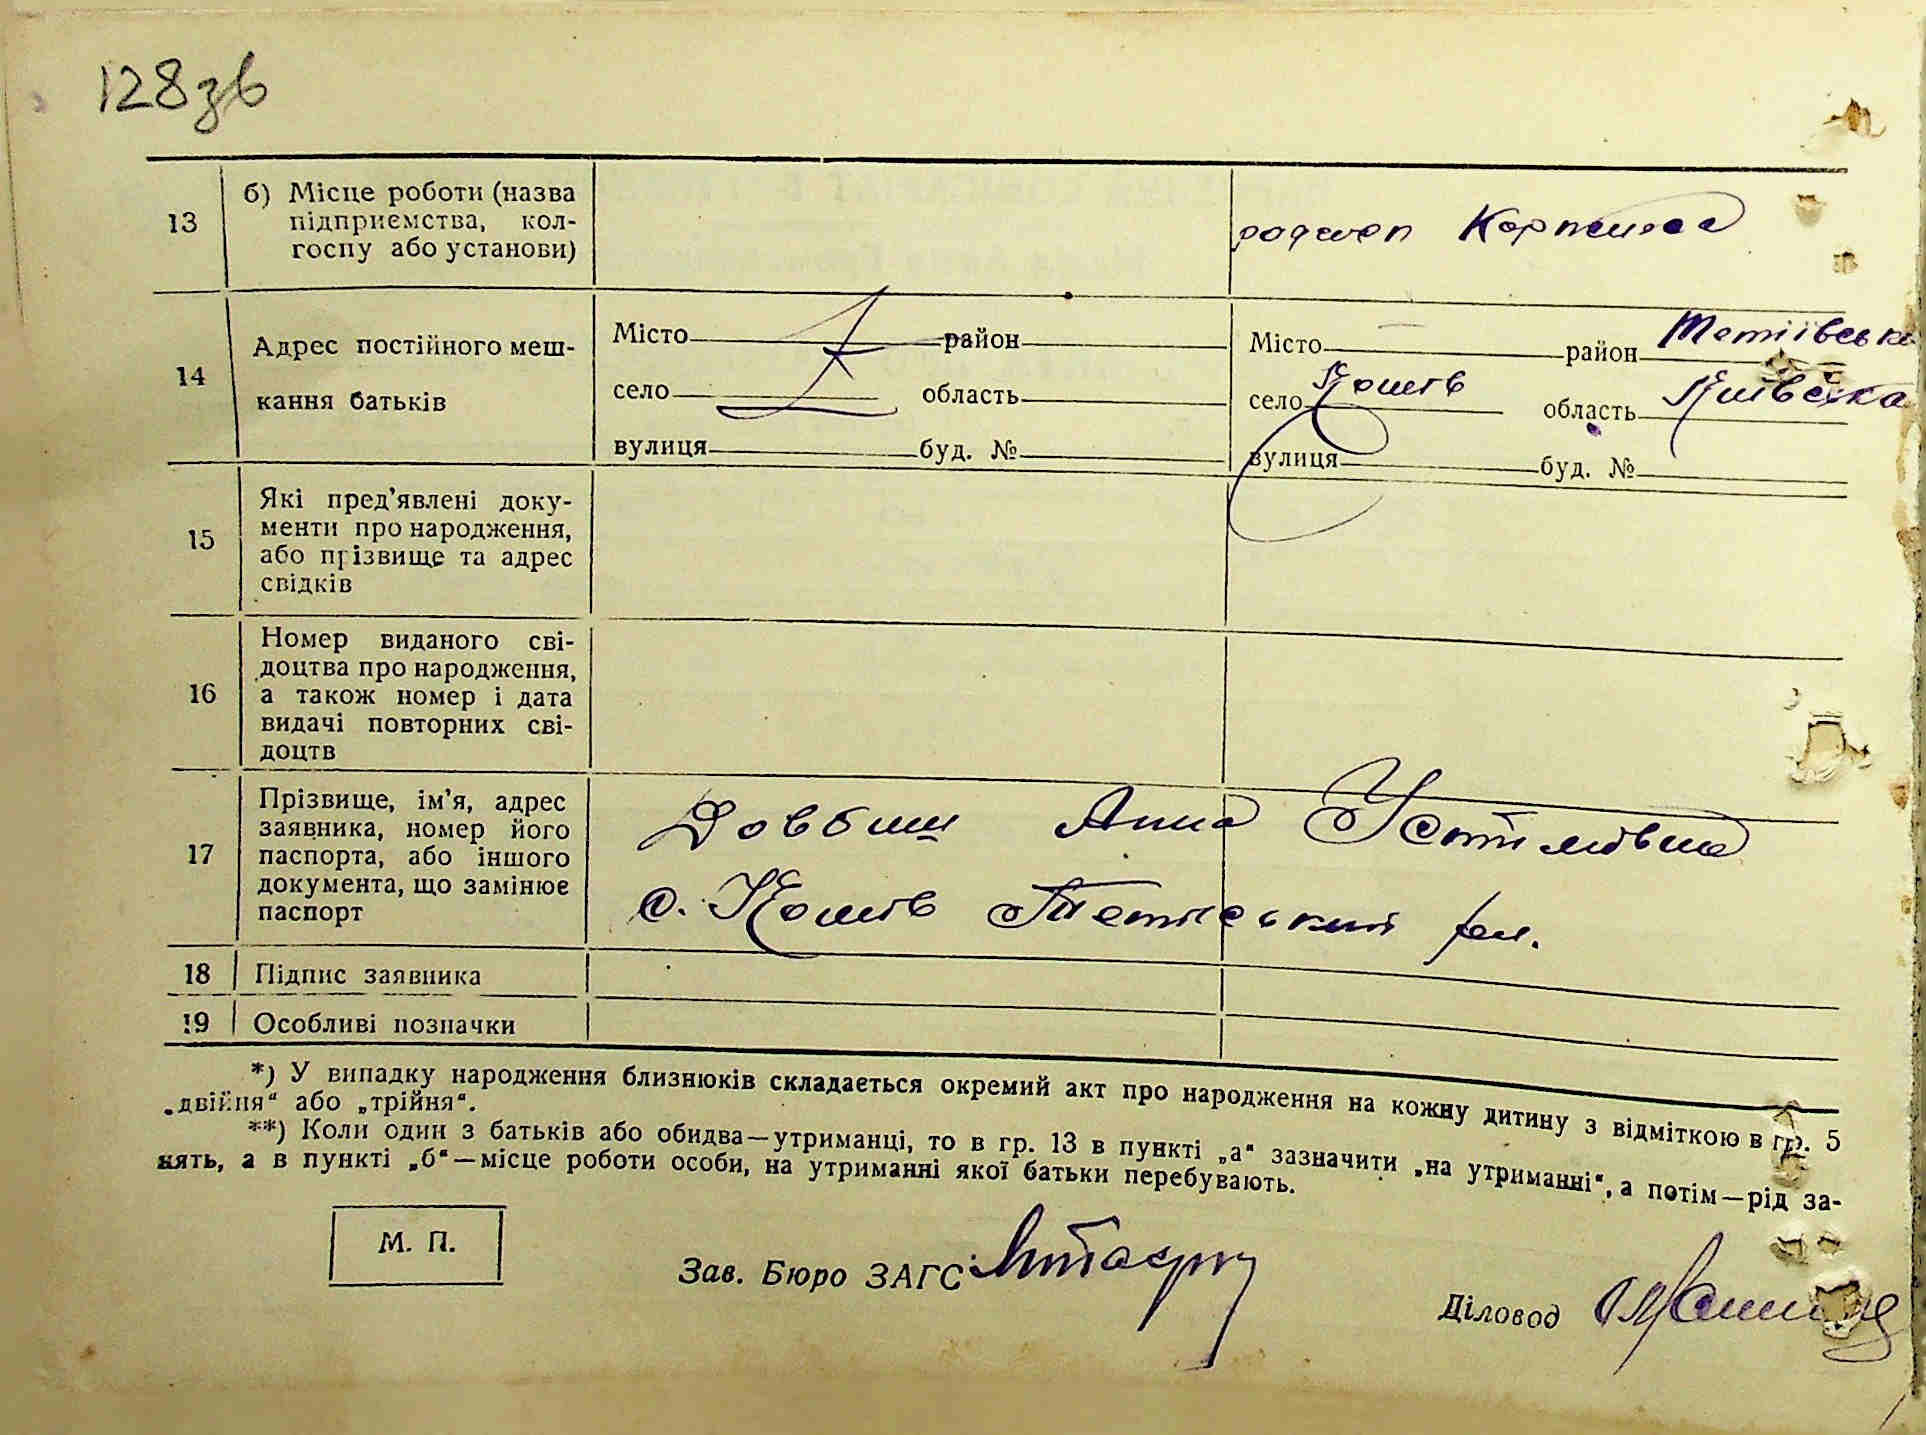 128зв
13
б) Місце роботи (назва
підприємства, кол-
госпу або установи)
радгосп
14
Адрес постійного меш-
кання батьків
Місто район
село область
вулиця буд. №
Місто — район Тетіївськ
село Кошів область Київська
вулиця буд. №
15
Які пред'явлені доку-
менти про народження,
або прізвище та адрес
свідків
16
Номер виданого сві-
доцтва про народження,
а також номер і дата
видачі повторних сві-
доцтв
17
Прізвище, ім'я, адрес
заявника, номер його
паспорта, або іншого
документа, що замінює
паспорт
Довбиш Анна Устимівна
с. Кошів Тетіївський рн.
18 Підпис заявника
19 Особливі позначки
*) У випадку народження близнюків складається окремий акт про народження на кожну дитину з відміткою в гр. 5
„двійня“ або „трійня“.
**) Коли один з батьків або обидва—утриманці, то в гр. 13 в пункті „а“ зазначити „на утриманні“, а потім—рід за-
нять, а в пункті „б“—місце роботи особи, на утриманні якої батьки перебувають.
М. П.
Зав. Бюро ЗАГС
Діловод